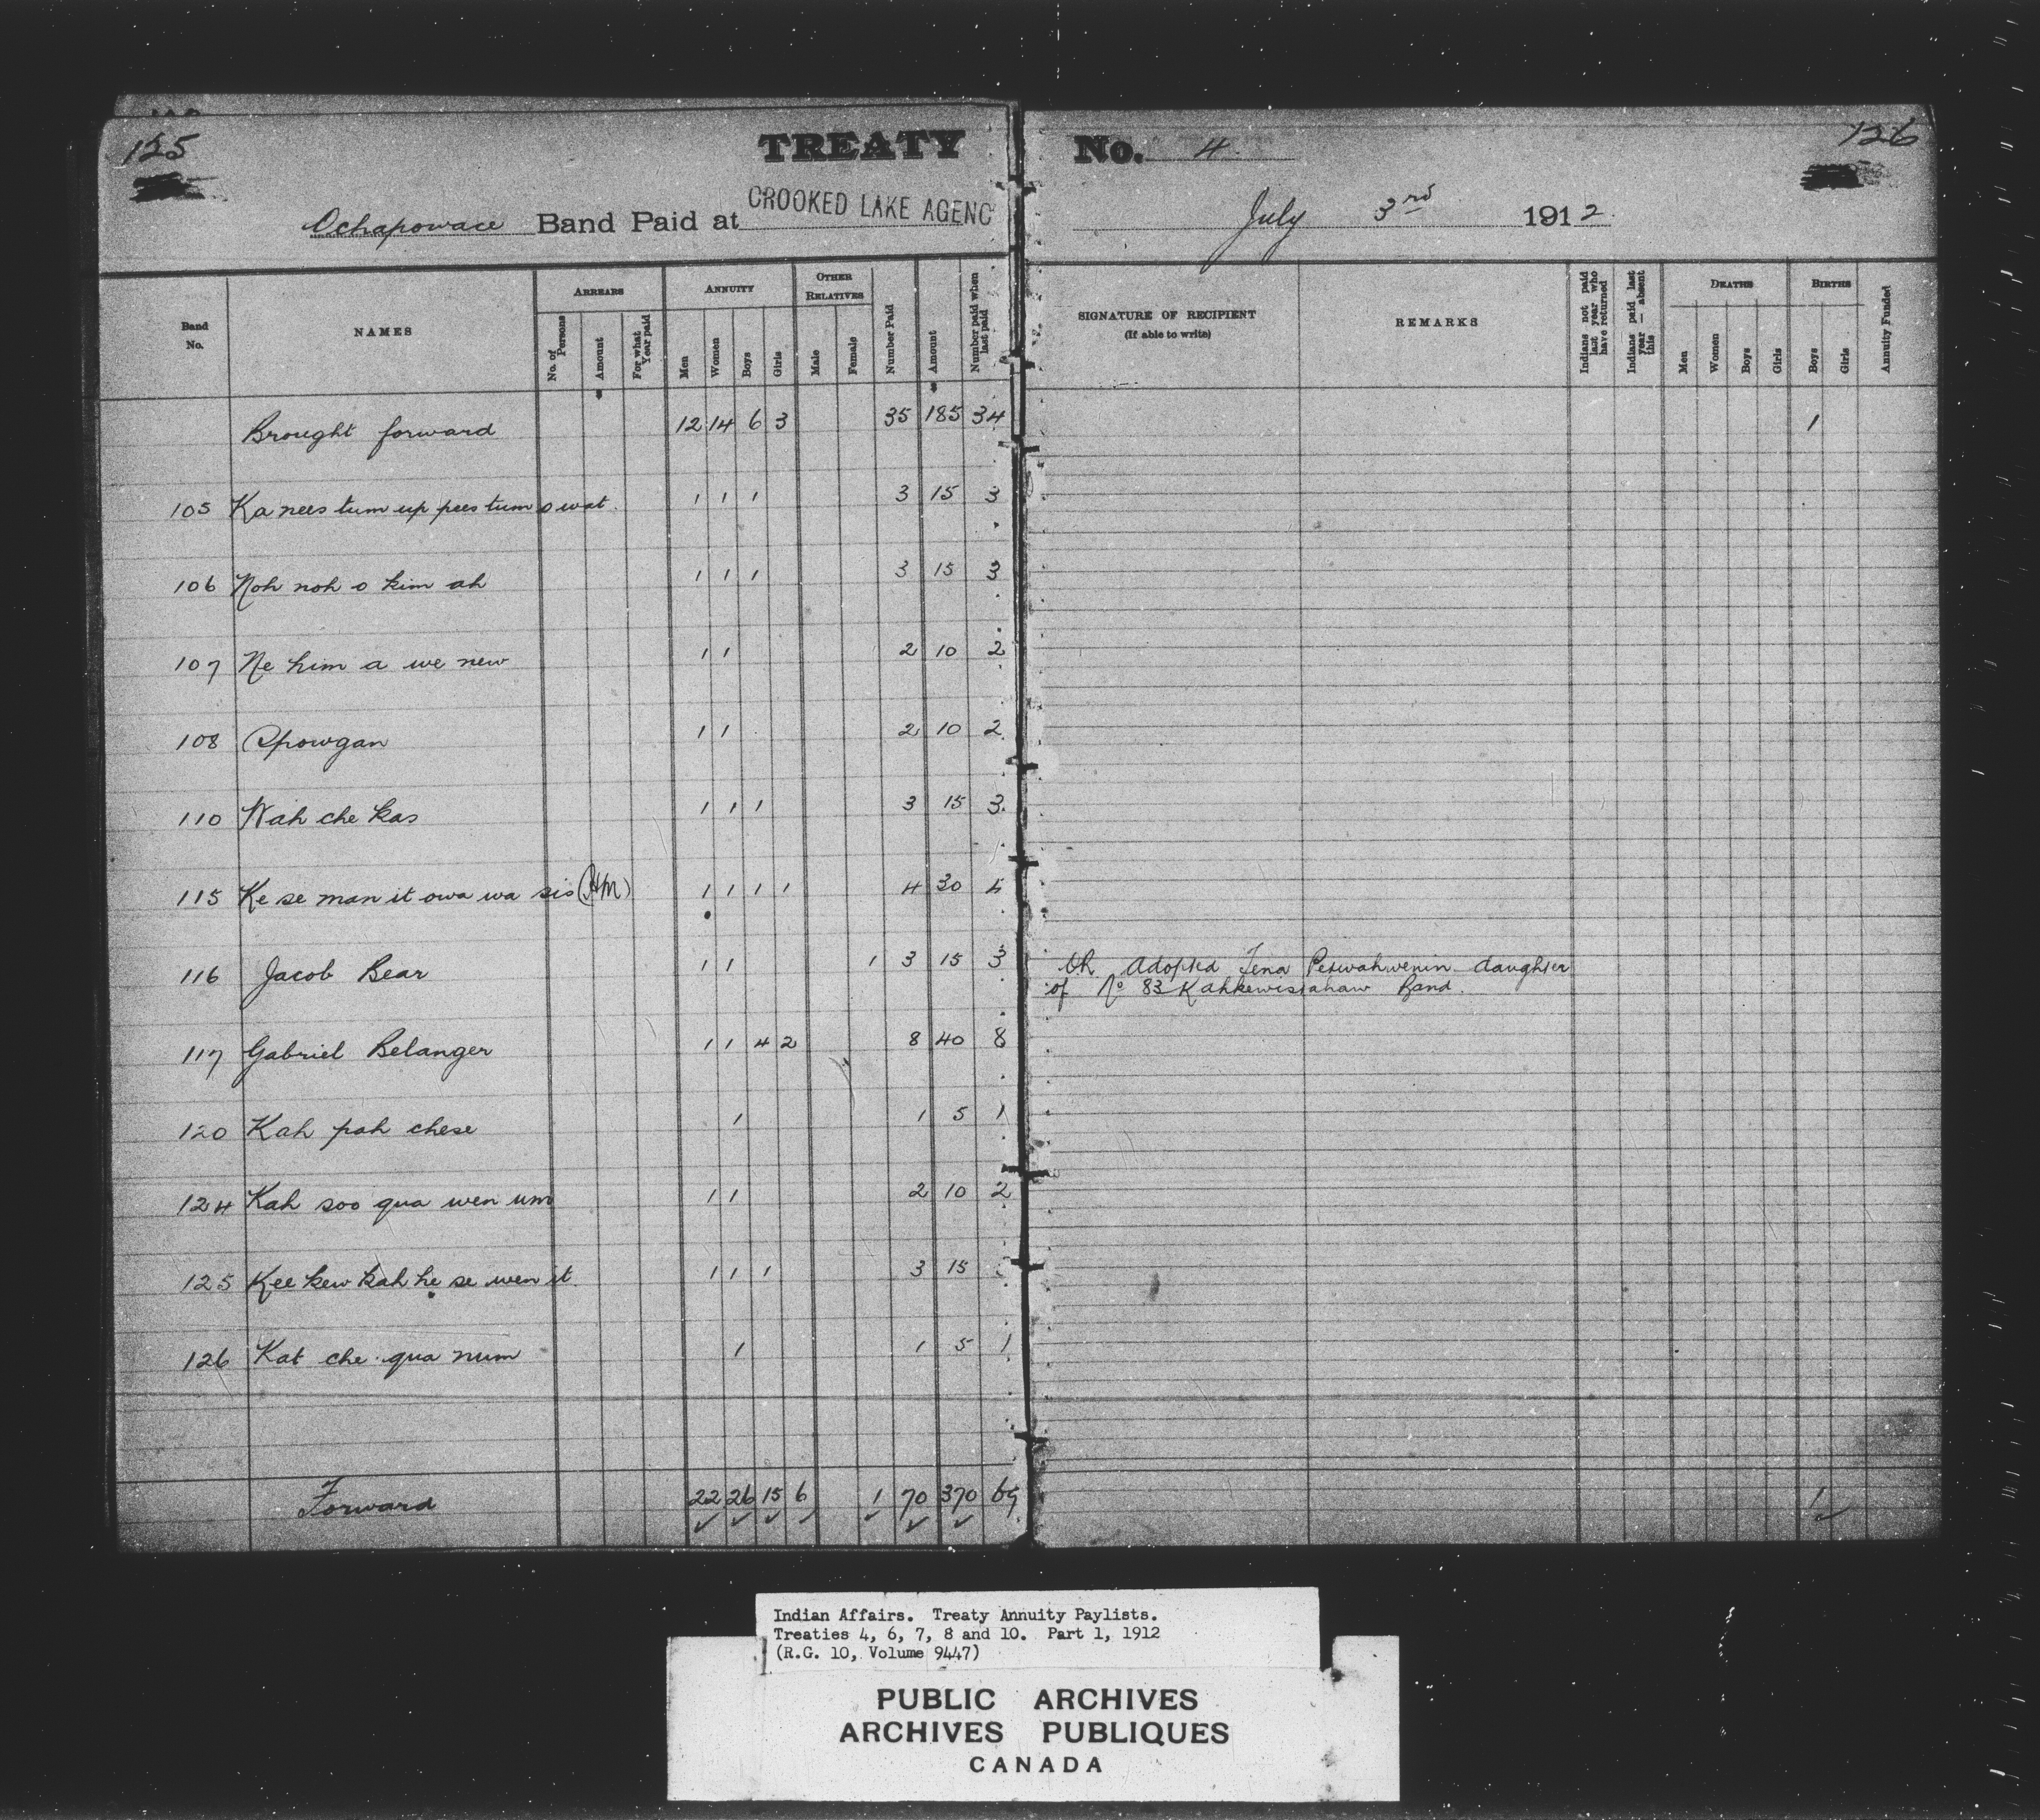 125
TREATY No. 4
126
Ochapowace Band Paid at CROOKED LAKE AGENC
July 3rd 1912
Band No.
NAMES
ARREARS
No. of Persons
Amount
For what Year paid
ANNUITY
Men
Women
Boys
Girls
OTHER RELATIVES
Male
Female
Number Paid
Amount
Number paid when last paid
SIGNATURE OF RECIPIENT
(If able to write)
REMARKS
Indians not paid last year who have returned
Indians paid last year — absent this
DEATHS
Men
Women
Boys
Girls
BIRTHS
Boys
Girls
Annuity Funded
Brought forward 12 14 6 3 35 185 34 1
105 Ka nees tum up pees tum o wat 1 1 1 3 15 3
106 Noh noh o kim ah 1 1 1 3 15 3
107 Ne him a we new 1 1 2 10 2
108 Opowgan 1 1 2 10 2
110 Wah che kas 1 1 1 3 15 3
115 Ke se man it owa wa sis (HM) 1 1 1 1 4 30
116 Jacob Bear 1 1 1 3 15 3 Adopted Lena Peewahwenin daughter
of No 83 Kahkewistahaw Band.
117 Gabriel Belanger 1 1 4 2 8 40 8
120 Kah pah chese 1 1 5 1
124 Kah soo qua wen um 1 1 2 10 2
125 Kee kew kah he se wen it 1 1 1 3 15
126 Kat che qua num 1 1 5 1
Forward 22 26 15 6 1 70 370 69 1
Indian Affairs. Treaty Annuity Paylists.
Treaties 4, 6, 7, 8 and 10. Part 1, 1912
(R.G. 10, Volume 9447)
PUBLIC ARCHIVES
ARCHIVES PUBLIQUES
CANADA